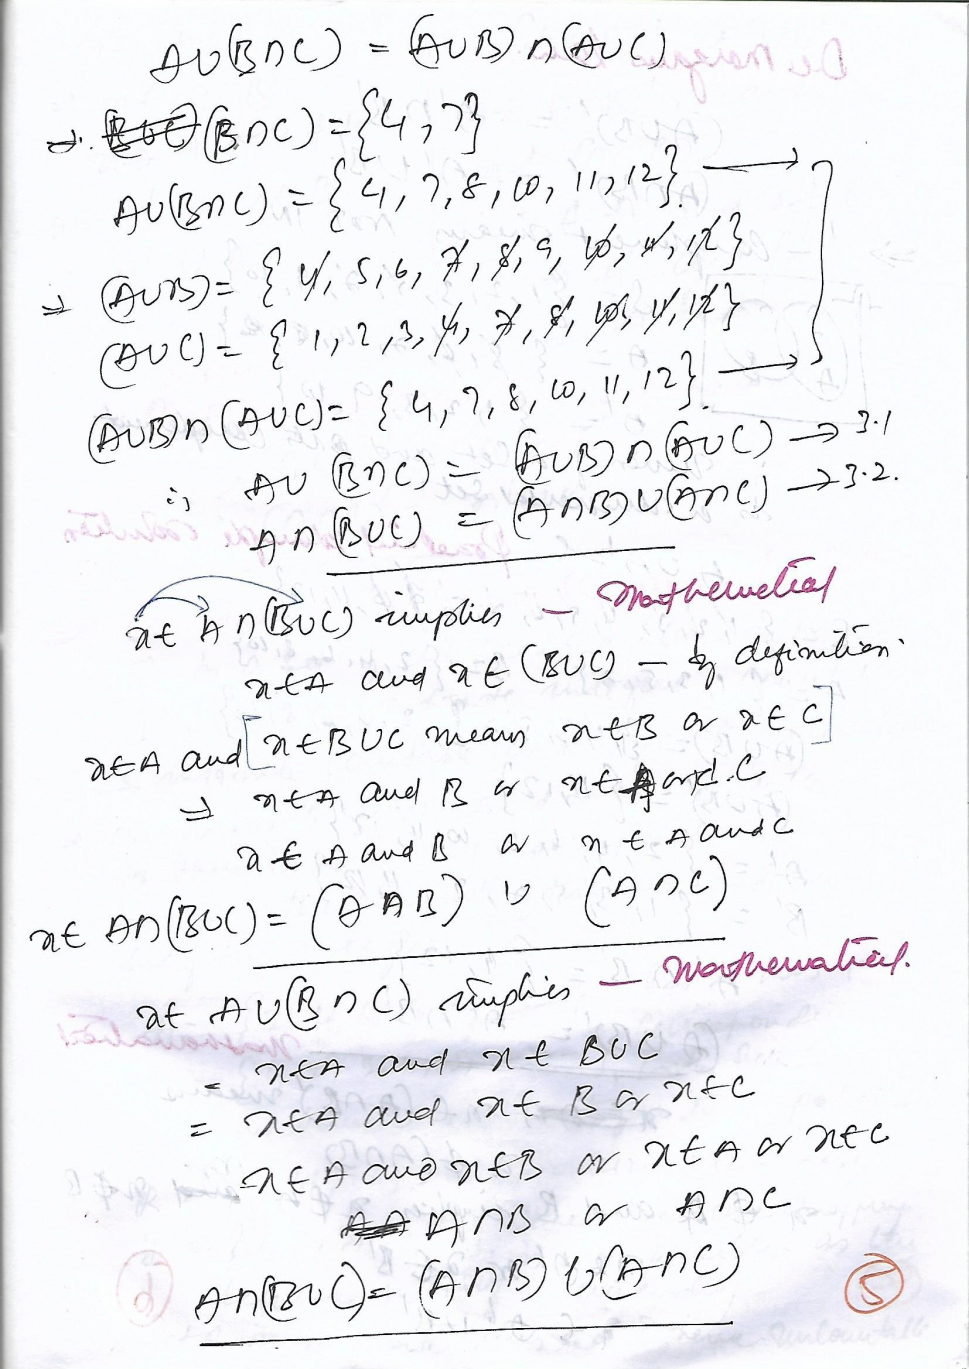 A∪(B∩C) = (A∪B)∩(A∪C)
→ (B∩C) = {4, 7}
A∪(B∩C) = {4, 7, 8, 10, 11, 12} →
⇒ (A∪B) = {4, 5, 6, 7, 8, 9, 10, 11, 12}
(A∪C) = {1, 2, 3, 4, 7, 8, 10, 11, 12}
(A∪B)∩(A∪C) = {4, 7, 8, 10, 11, 12}. →
A∪(B∩C) = (A∪B)∩(A∪C) → 3.1
A∩(B∪C) = (A∩B)∪(A∩C) → 3.2.
x∈ A∩(B∪C) implies – Mathematical
x∈A and x∈(B∪C) – by definition.
x∈A and [x∈B∪C means x∈B or x∈C]
⇒ x∈A and B or x∈A and C
x∈A and B or x∈A and C
x∈ A∩(B∪C) = (A∩B) ∪ (A∩C)
x∈ A∪(B∩C) implies – Mathematical.
= x∈A and x∈ B∪C
= x∈A and x∈ B or x∈C
x∈A and x∈B or x∈A or x∈C
A∩B or A∩C
A∩(B∪C) = (A∩B)∪(A∩C)
5